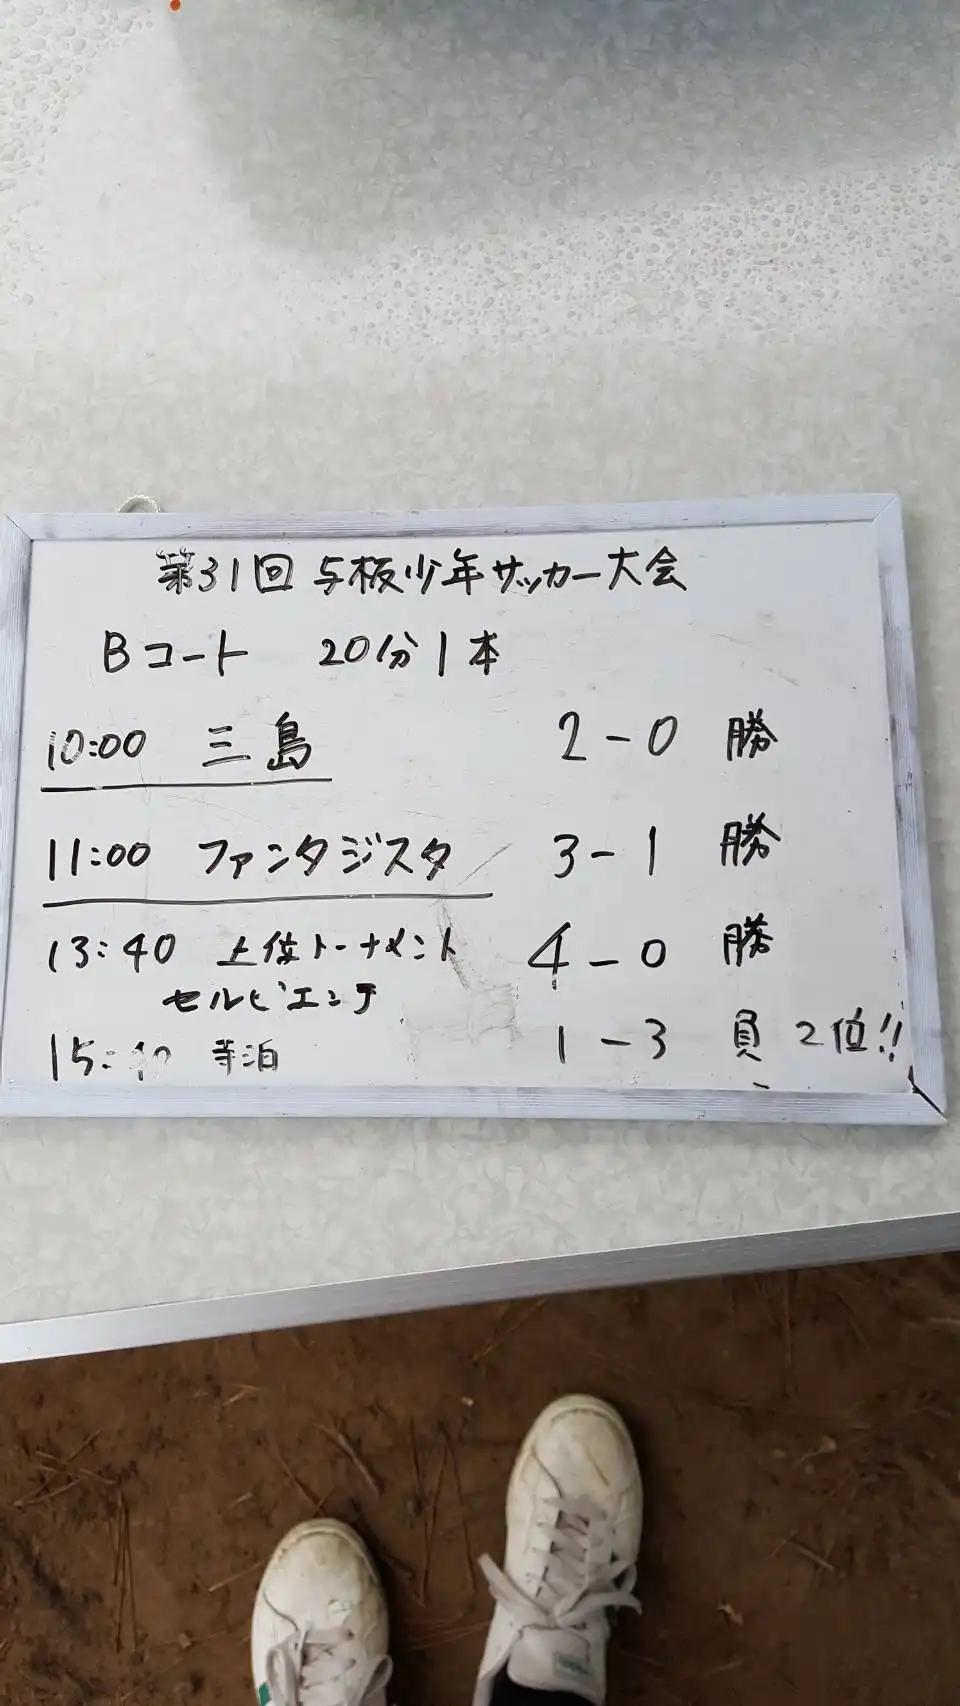 第31回 与板少年サッカー大会
Bコート 20分1本
10:00 三島 2-0 勝
11:00 ファンタジスタ 3-1 勝
13:40 上位トーナメント 4-0 勝
セルビエンテ
寺泊 1-3 負 2位!!